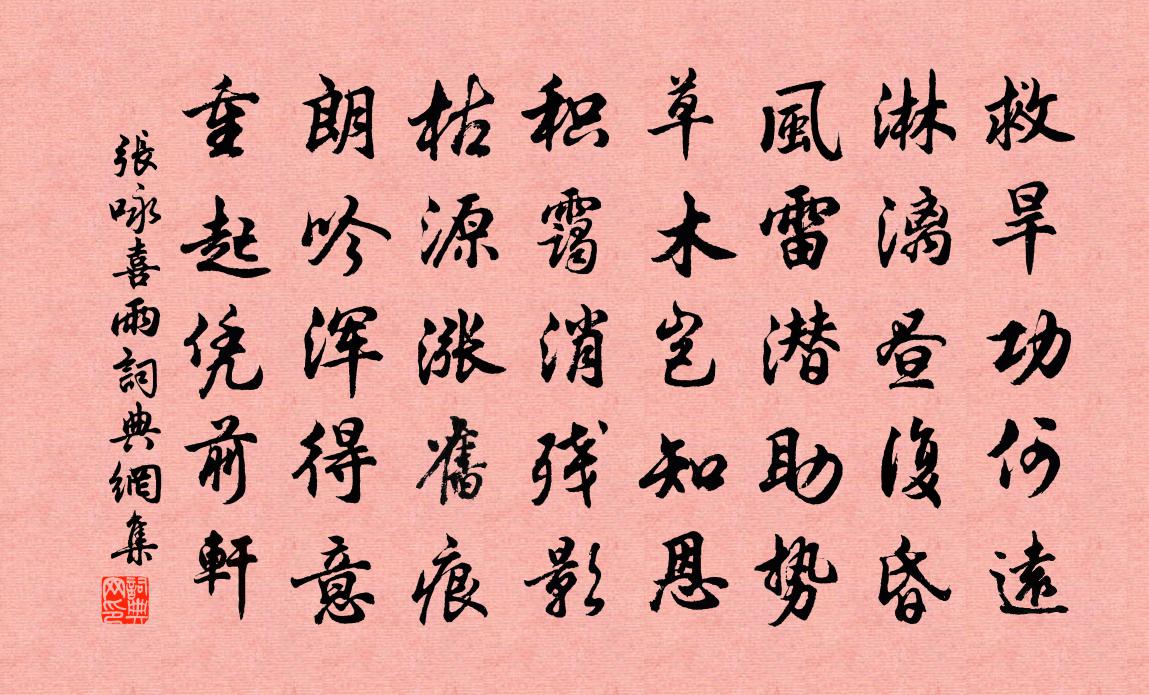 救旱功何遠
淋漓昼復昏
風雷潜助势
草木岂知恩
积霭消残影
枯源漲舊痕
朗吟浑得意
重起凭前軒
張咏喜雨詞典網集
詞典网印